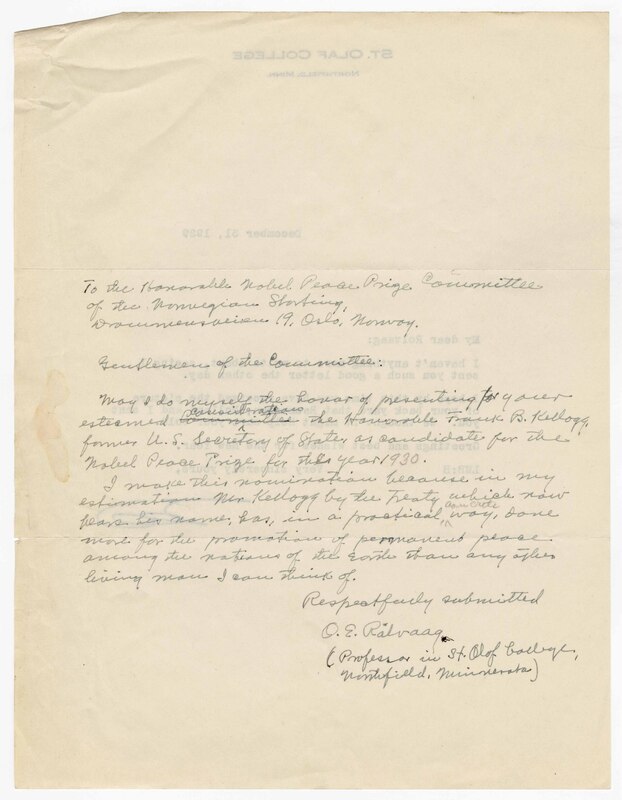 ST. OLAF COLLEGE
NORTHFIELD, MINN.
December 31, 1929
To the Honorable Nobel Peace Prize Committee
of the Norwegian Storting,
Drammensveien 19, Oslo, Norway.
My dear Rolvaag:
Gentlemen of the Committee:
May I do myself the honor of presenting to your
consideration
esteemed committee the Honorable Frank B. Kellogg,
former U.S. Secretary of State, as candidate for the
Nobel Peace Prize for the year 1930.
I make this nomination because in my
estimation Mr Kellogg by the Treaty which now
concrete
bears his name, has, in a practical, way, done
more for the promotion of permanent peace
among the nations of the Earth than any other
living man I can think of.
Respectfully submitted
O. E. Rölvaag
(Professor in St. Olof College,
Northfield, Minnesota)